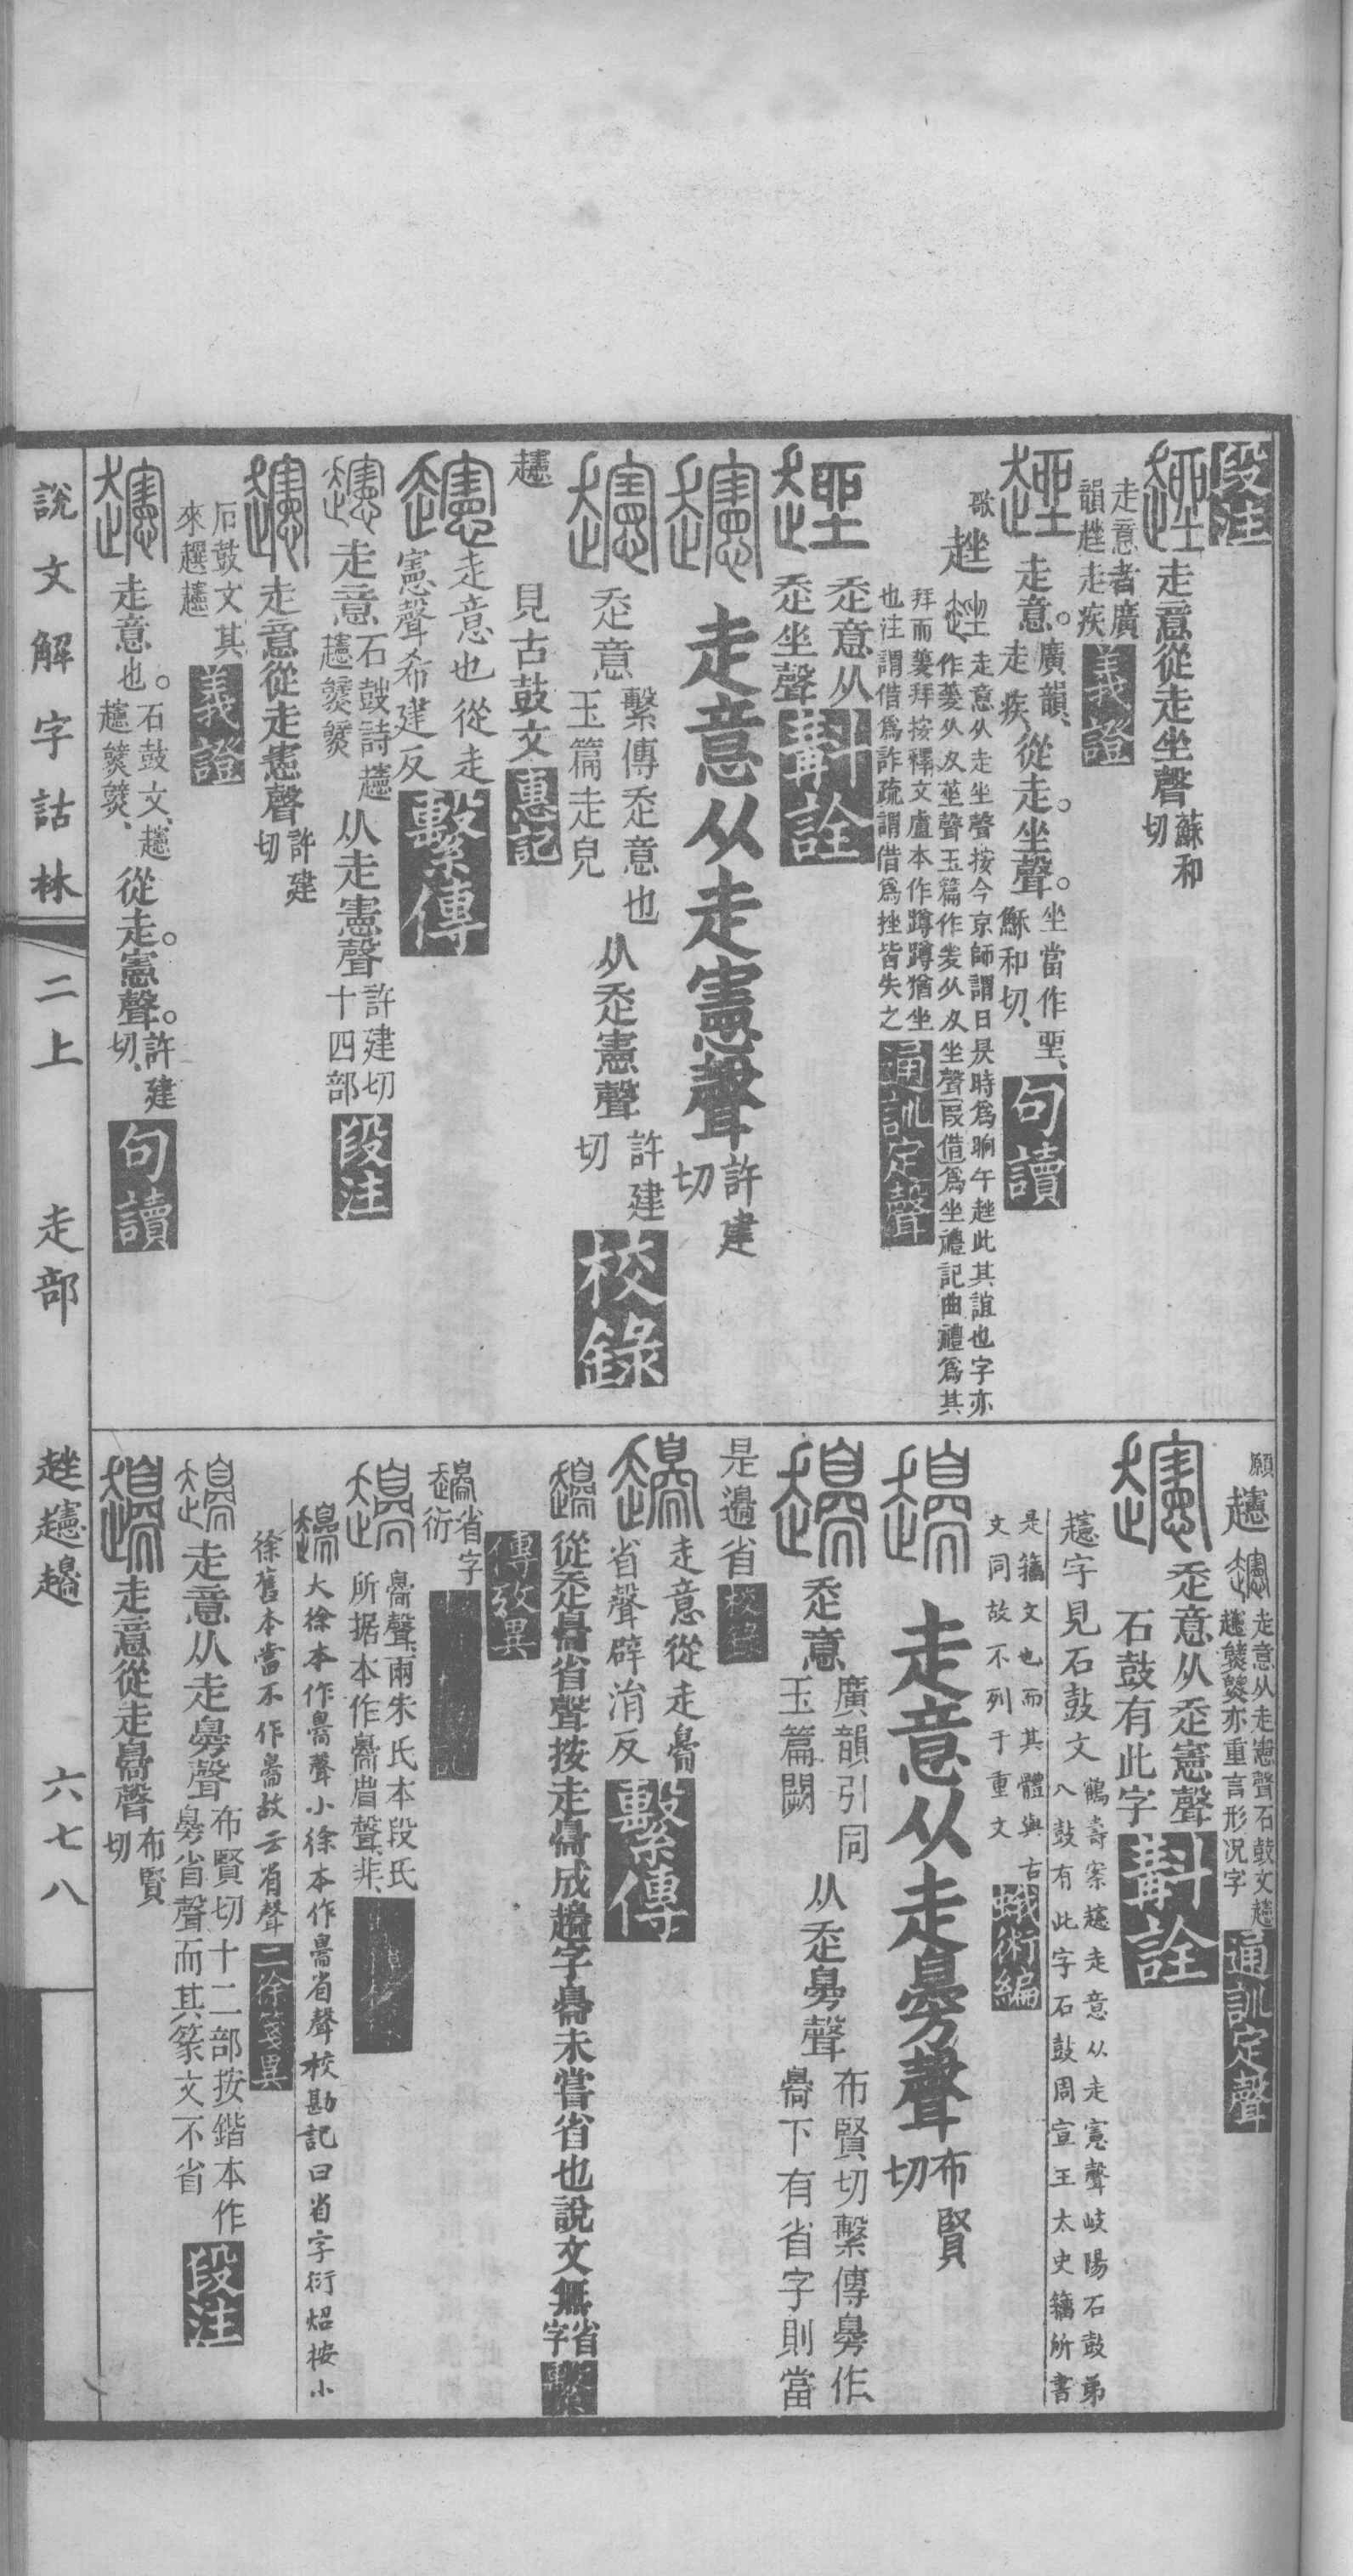 段注
走意從走坐聲蘇和切
走意者廣韻䞆走疾
義證
走意。廣韻、走疾、從走。坐聲。坐當作𡋲、穌和切、
句讀
歌
䞆
走意从走坐聲按今京師謂日昃時爲晌午䞆此其誼也字亦
作夎从夊坐聲玉篇作夎从夊坐聲叚借爲坐禮記曲禮爲其
拜而夎拜按釋文盧本作蹲蹲猶坐
也注謂借爲詐疏謂借爲挫皆失之
通訓定聲
赱意从赱坐聲
斠詮
走意从走憲聲許建切
赱意繫傳赱意也玉篇走皃从赱憲聲許建切
校錄
𧾨
見古鼓文
惠記
走意也從走憲聲希建反
繫傳
走意石鼓詩𧾨𧾨㷼㷼从走憲聲許建切十四部
段注
走意從走憲聲許建切
石鼓文其來趩𧾨
義證
走意也。石鼓文、𧾨𧾨㷼㷼、從走。憲聲。許建切、
句讀
說文解字詁林
二上
走部
䞆𧾨𧾫
六七八
願
𧾨
走意从走憲聲石鼓文𧾨
𧾨㷼㷼亦重言形况字
通訓定聲
赱意从赱憲聲石鼓有此字
斠詮
𧾨字見石鼓文
鶴壽案𧾨走意从走憲聲岐陽石鼓弟
八鼓有此字石鼓周宣王太史籒所書
是籒文也而其體與古
文同故不列于重文
蛾術編
走意从走臱聲布賢切
赱意廣韻引同玉篇闕从赱臱聲布賢切繫傳臱作𦤝下有省字則當
是邊省
校錄
走意從走𦤝省聲辟涓反
繫傳
從赱𦤝省聲按走𦤝成𧾫字𦤝未嘗省也說文無省字
繫傳攷異
省字衍
𦤝聲、兩朱氏本段氏
所据本作𦤝省聲、非、
大徐本作𦤝聲小徐本作𦤝省聲校勘記曰省字衍炤按小
徐舊本當不作𦤝故云省聲
二徐箋異
走意从走臱聲布賢切十二部按鍇本作臱省聲而其篆文不省
段注
走意從走𦤝聲布賢切